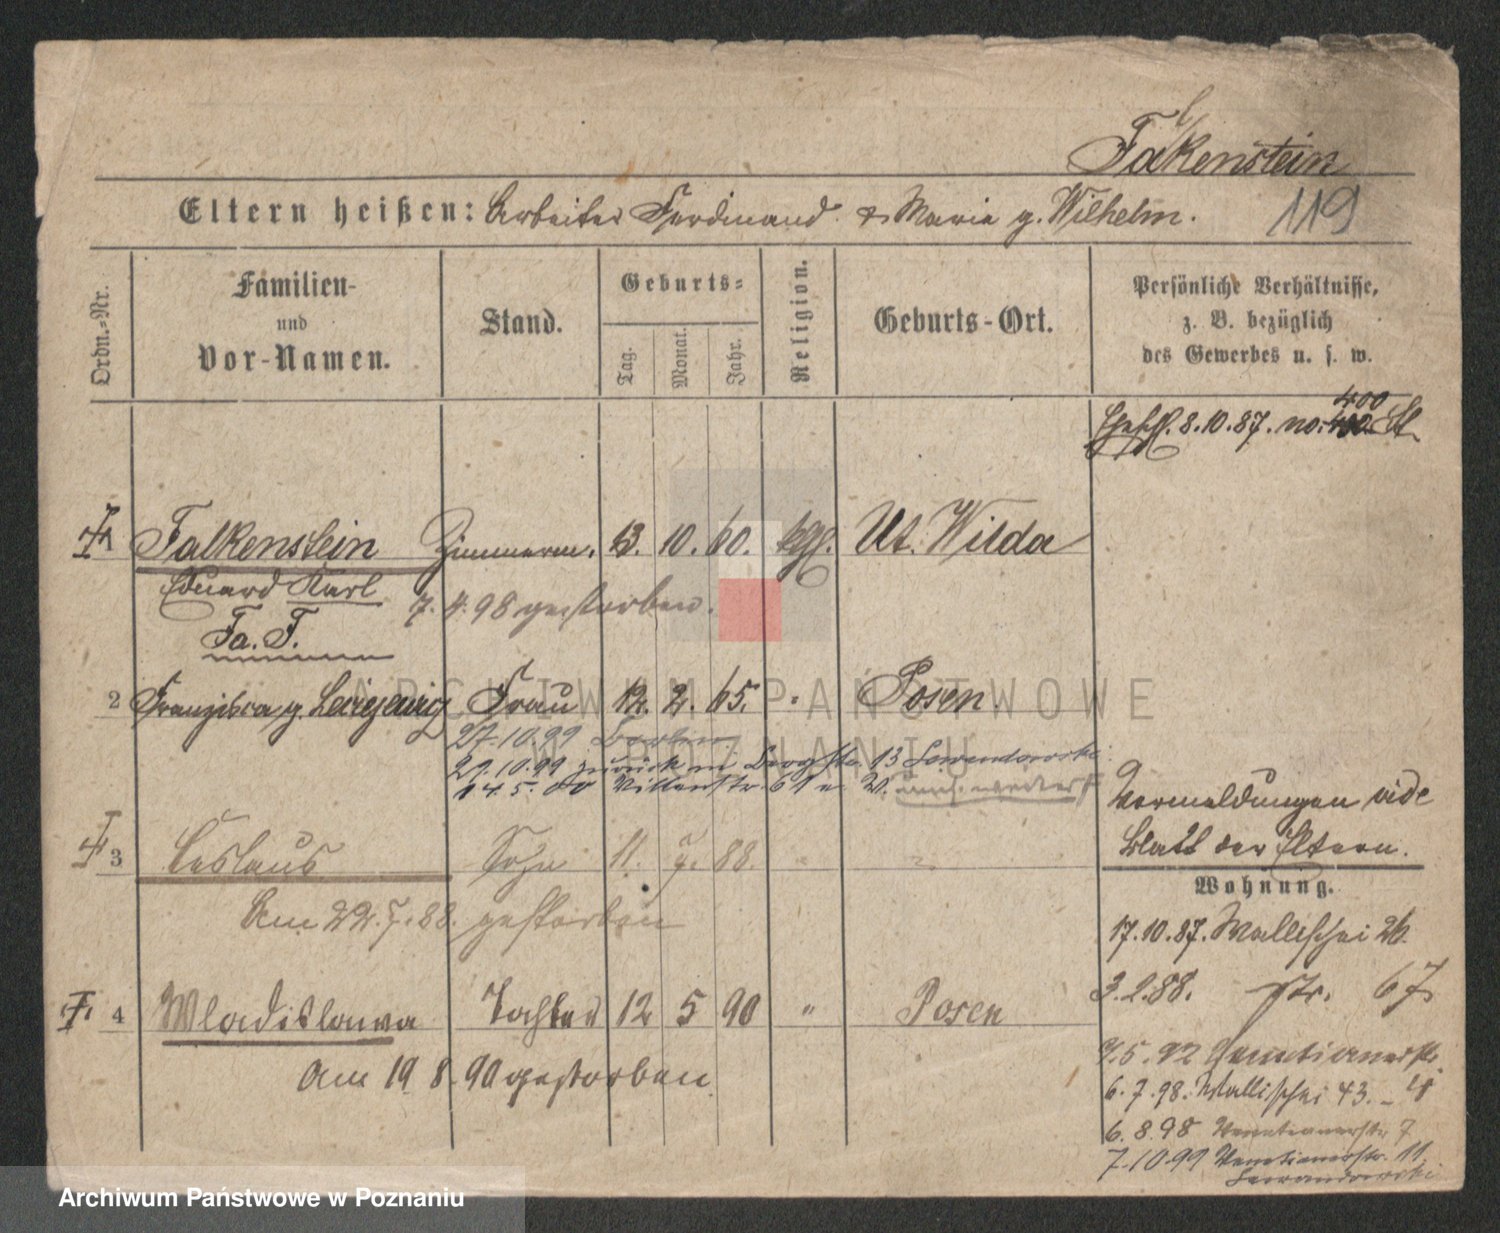 Falkenstein
Eltern heißen: Arbeiter Ferdinand & Maria g. Wilhelm.
119
Ordn.-Nr.
Familien- und Vor-Namen.
Stand.
Geburts-
Tag.
Monat.
Jahr.
Religion.
Geburts-Ort.
Persönliche Verhältnisse,
z. B. bezüglich
des Gewerbes u. s. w.
400
8.10.87. no.
Falkenstein Zimmerm. 13. 10. 60. kgl. Ut. Wilda
Eduard Karl
7. 4. 98 gestorben.
Fa. F.
2 Franziska g. Frau 12. 2. 65. " Posen
27.10.99 Berlin
29.10.99 zurück Bergstr. 13 Lewandowski
14.5.00 Villenstr. 6
Vermeldungen vide
Blatt der Eltern.
3 Ceslaus Sohn 11. 7. 88. " "
Am 22.7.88. gestorben
Wohnung.
17.10.87. Wallischei 26.
4 Wladislawa Tochter 12 5 90 " Posen
3.2.88. str. 67
Am 19 8. 90 gestorben
9.5.92 Venetianerstr.
6.7.98. Wallischei 43.
6.8.98 Venetianerstr 7
7.10.99 Venetianerstr. 11
Lewandowski
ARCHIWUM PAŃSTWOWE
W POZNANIU
Archiwum Państwowe w Poznaniu